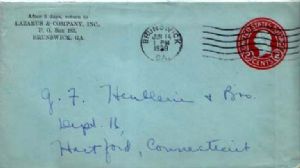 After 5 days, return to
LAZARUS & COMPANY, INC.,
P. O. Box 183,
BRUNSWICK, GA.
BRUNSWICK
JAN 14
1 PM
GA.
UNITED STATES
CENTS
G. F. Heublein & Bro.
Dept. H,
Hartford, Connecticut